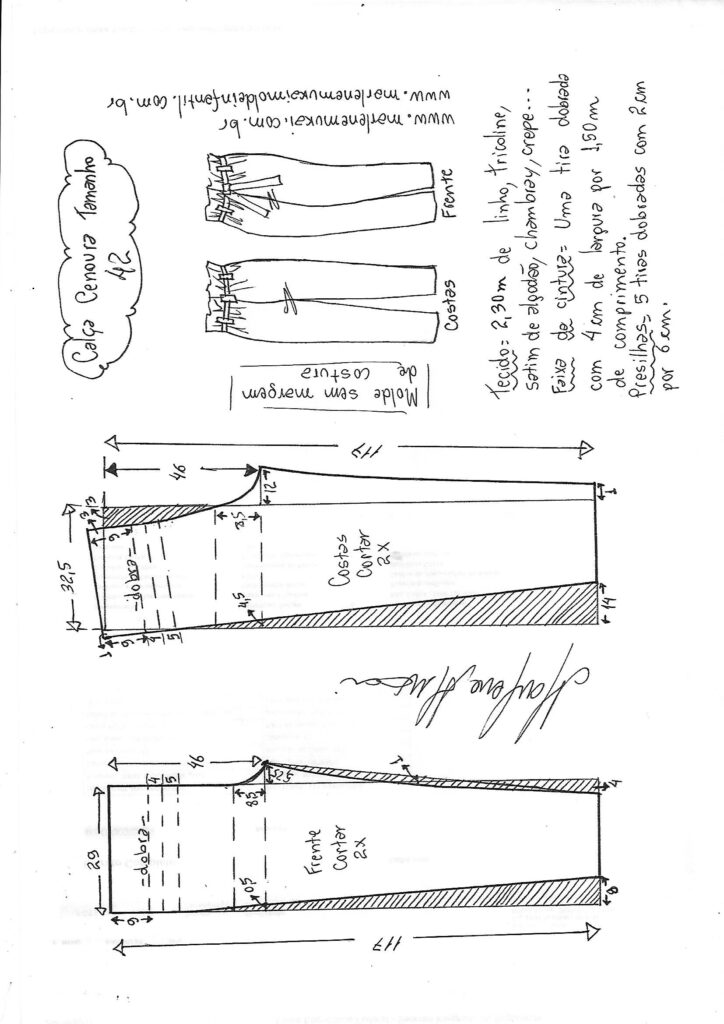 Calça Cenoura Tamanho
42
www.marlenemukai.com.br
www.marlenemukaimoldeinfantil.com.br
Frente
Costas
Molde sem margem
de costura
Tecido= 2,30m de linho, tricoline,
setim de algodão, chambray, crepe...
Faixa de cintura= Uma tira dobrada
com 4 cm de largura por 1,50m
de comprimento.
Presilhas= 5 tiras dobradas com 2 cm
por 6 cm.
117
46
12
1
3
3
9
32,5
8,5
-dobra-
Costas
Cortar
2X
4,5
1
9
4
5
14
Marlene Mukai
46
4
5
8,5
1
4
29
-dobra-
Frente
Cortar
2X
0,5
9
8
117